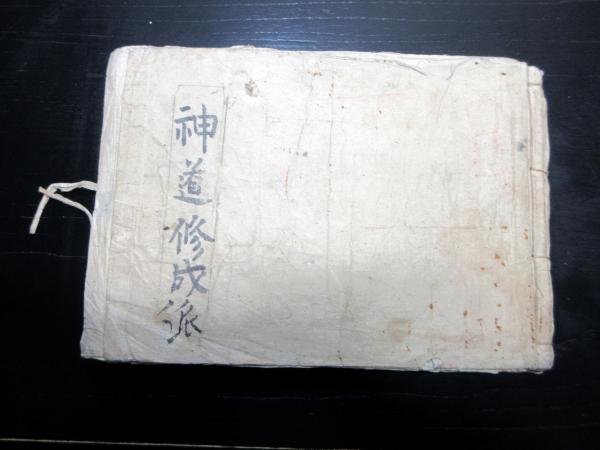 神道修成派